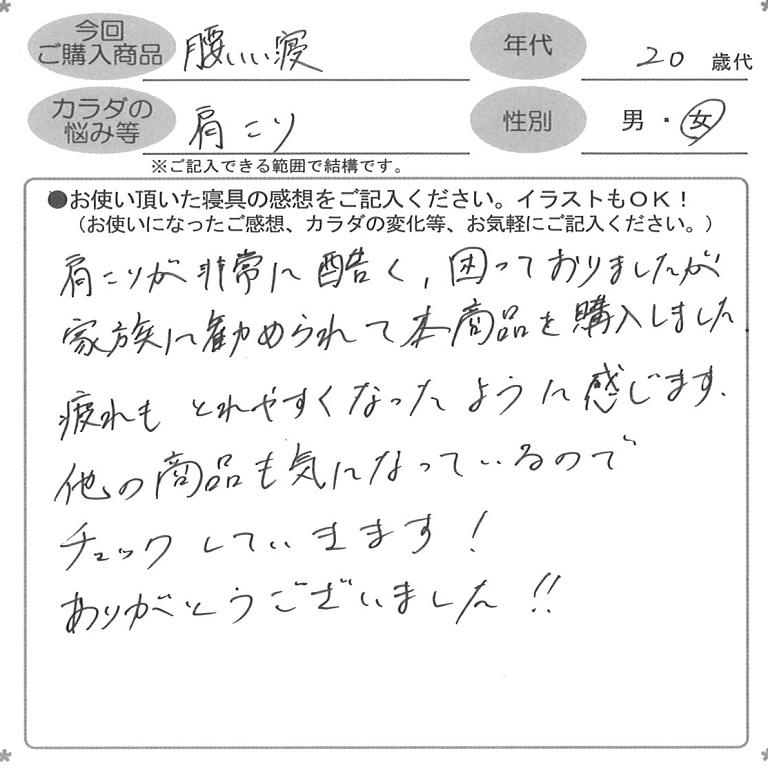 今回
ご購入商品
腰いい寝
年代
20 歳代
カラダの
悩み等
肩こり
性別
男・女
※ご記入できる範囲で結構です。
●お使い頂いた寝具の感想をご記入ください。イラストもOK！
（お使いになったご感想、カラダの変化等、お気軽にご記入ください。）
肩こりが非常に酷く、困っておりましたが
家族に勧められて本商品を購入しました.
疲れもとれやすくなったように感じます.
他の商品も気になっているので
チェックしていきます！
ありがとうございました!!